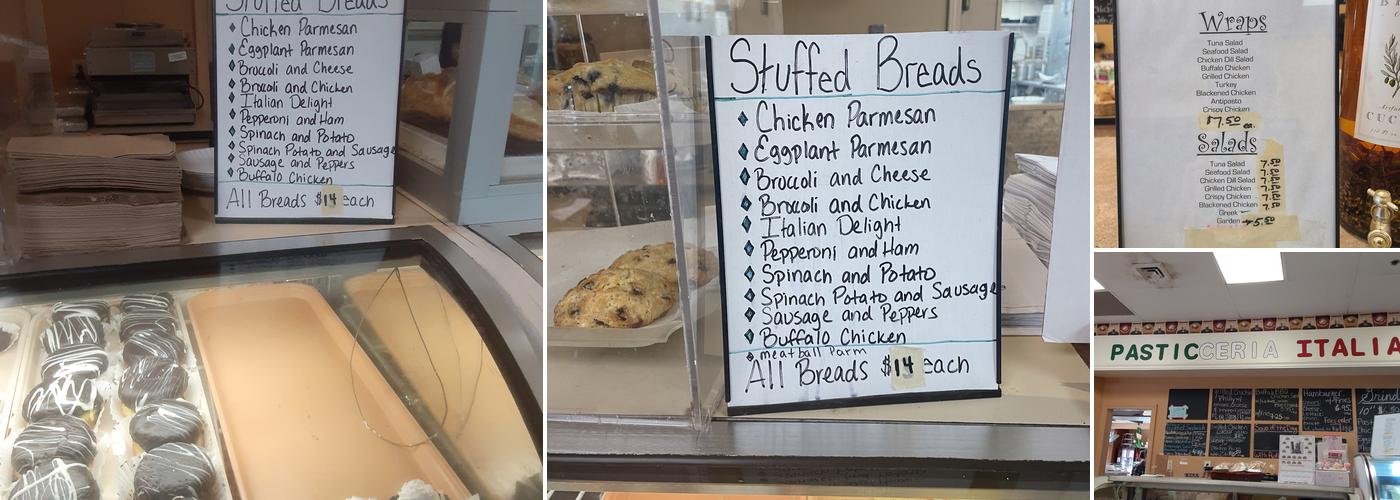 Stuffed Breads
Chicken Parmesan
Eggplant Parmesan
Broccoli and Cheese
Broccoli and Chicken
Italian Delight
Pepperoni and Ham
Spinach and Potato
Spinach Potato and Sausage
Sausage and Peppers
Buffalo Chicken
All Breads $14 each
Stuffed Breads
Chicken Parmesan
Eggplant Parmesan
Broccoli and Cheese
Broccoli and Chicken
Italian Delight
Pepperoni and Ham
Spinach and Potato
Spinach Potato and Sausage
Sausage and Peppers
Buffalo Chicken
meatball Parm
All Breads $14 each
Wraps
Tuna Salad
Seafood Salad
Chicken Dill Salad
Buffalo Chicken
Grilled Chicken
Turkey
Blackened Chicken
Antipasto
Crispy Chicken
$7.50 ea.
Salads
Tuna Salad 7.50
Seafood Salad 7.50
Chicken Dill Salad 7.50
Grilled Chicken 7.50
Crispy Chicken 7.50
Blackened Chicken 7.50
Greek
Garden 5.50
PASTICCERIA ITALIA
Hamburger